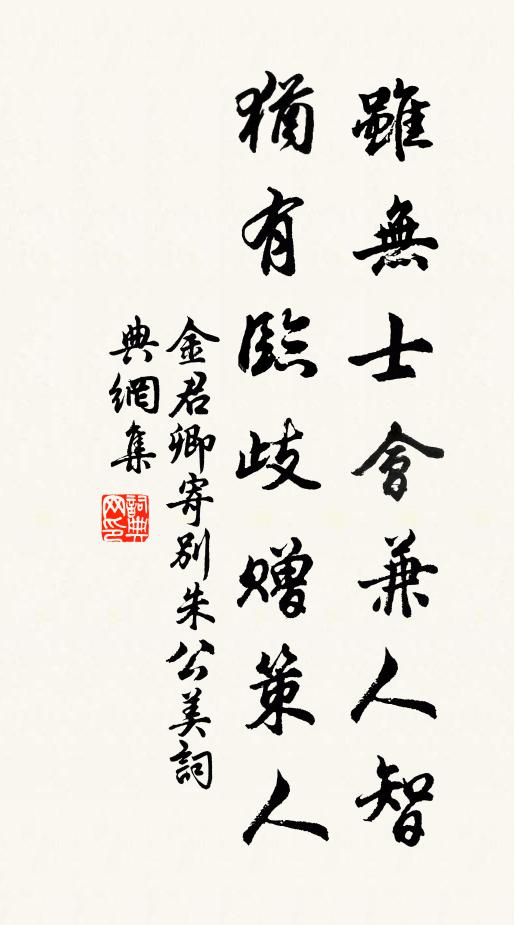 雖無士會兼人智
猶有臨歧贈策人
金君卿寄別朱公美詞
典網集
詞典網印